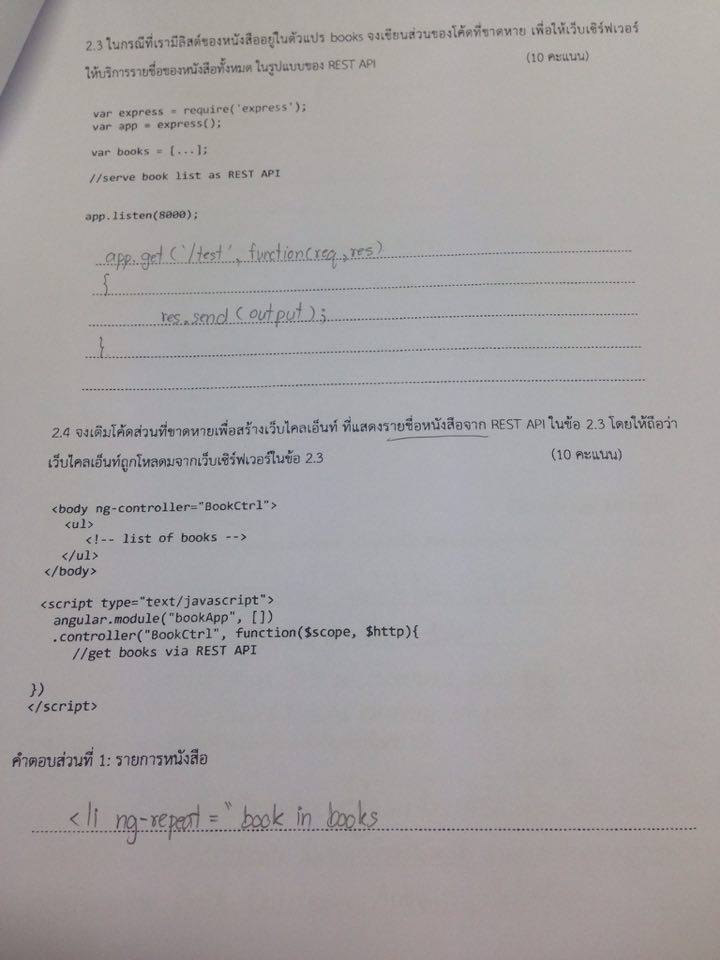 2.3 ในกรณีที่เรามีลิสต์ของหนังสืออยู่ในตัวแปร books จงเขียนส่วนของโค้ดที่ขาดหาย เพื่อให้เว็บเซิร์ฟเวอร์
ให้บริการรายชื่อของหนังสือทั้งหมด ในรูปแบบของ REST API (10 คะแนน)
var express = require('express');
var app = express();
var books = [...];
//serve book list as REST API
app.listen(8000);
app.get('/test', function(req,res)
{
res.send(output);
}
2.4 จงเติมโค้ดส่วนที่ขาดหายเพื่อสร้างเว็บไคลเอ็นท์ ที่แสดงรายชื่อหนังสือจาก REST API ในข้อ 2.3 โดยให้ถือว่า
เว็บไคลเอ็นท์ถูกโหลดมจากเว็บเซิร์ฟเวอร์ในข้อ 2.3 (10 คะแนน)
<body ng-controller="BookCtrl">
<ul>
<!-- list of books -->
</ul>
</body>
<script type="text/javascript">
angular.module("bookApp", [])
.controller("BookCtrl", function($scope, $http){
//get books via REST API
})
</script>
คำตอบส่วนที่ 1: รายการหนังสือ
<li ng-repeat = "book in books